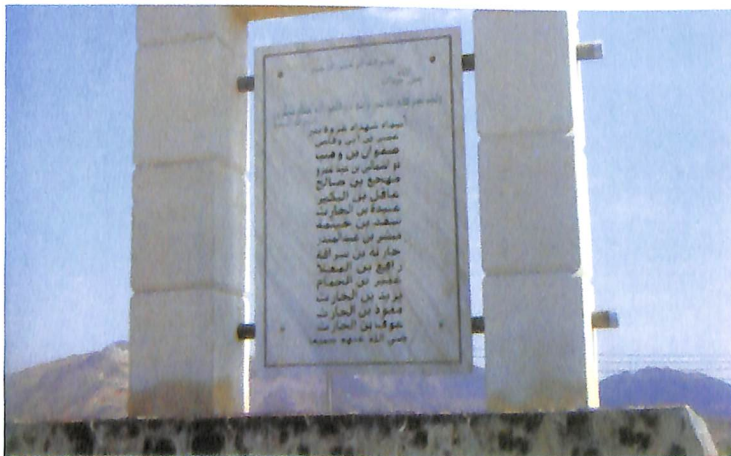 بسم الله الرحمن الرحيم
أسماء شهداء غزوة بدر
عمير بن أبي وقاص
صفوان بن وهب
ذو الشمالين بن عبد عمرو
مهجع بن صالح
عاقل بن البكير
عبيدة بن الحارث
سعد بن خيثمة
مبشر بن عبدالمنذر
حارثة بن سراقة
رافع بن المعلا
عمير بن الحمام
يزيد بن الحارث
معوذ بن الحارث
عوف بن الحارث
رضي الله عنهم جميعا